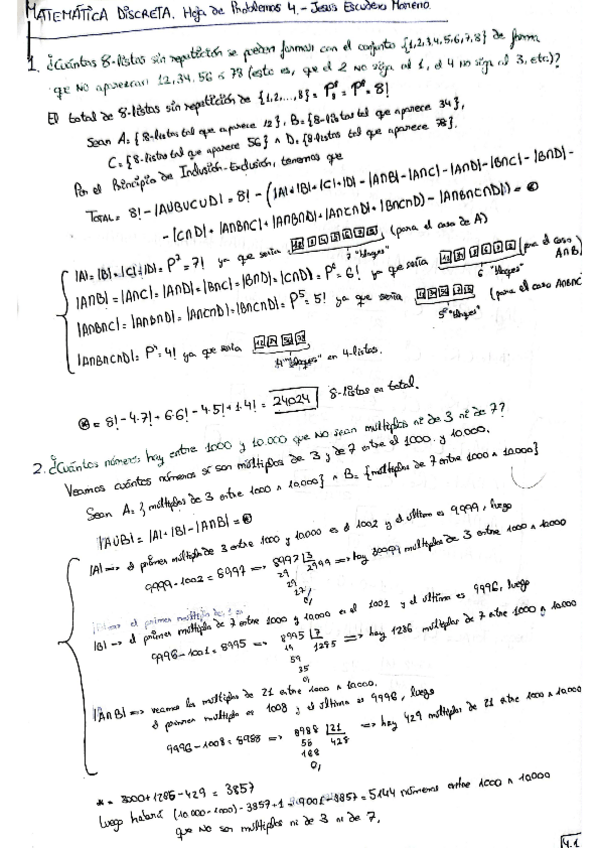 MATEMÁTICA DISCRETA. Hoja de Problemas 4.- Jesús Escudero Moreno.
1. ¿Cuántas 8-listas sin repetición se pueden formar con el conjunto {1,2,3,4,5,6,7,8} de forma
que NO aparezcan 12, 34, 56 ó 78 (esto es, que el 2 no siga al 1, el 4 no siga al 3, etc)?
El total de 8-listas sin repetición de {1,2,...,8} = P⁸ = 8!
Sean A={8-listas tal que aparece 12}, B={8-listas tal que aparece 34},
C={8-listas tal que aparece 56} ∧ D={8-listas tal que aparece 78}.
Por el Principio de Inclusión-Exclusión, tenemos que
TOTAL = 8! - |A∪B∪C∪D| = 8! - (|A|+|B|+|C|+|D| - |A∩B| - |A∩C| - |A∩D| - |B∩C| - |B∩D| -
- |C∩D| + |A∩B∩C| + |A∩B∩D| + |A∩C∩D| + |B∩C∩D| - |A∩B∩C∩D|) = ⊛
|A|=|B|=|C|=|D|= P⁷ = 7! ya que sería (para el caso de A)
7 "bloques"
|A∩B|=|A∩C|=|A∩D|=|B∩C|=|B∩D|=|C∩D|= P⁶ = 6! ya que sería (para el caso A∩B)
6 "bloques"
|A∩B∩C|=|A∩B∩D|=|A∩C∩D|=|B∩C∩D|= P⁵ = 5! ya que sería (para el caso A∩B∩C)
5 "bloques"
|A∩B∩C∩D|= P⁴ = 4! ya que sería 12 34 56 78
4 "bloques" en 4-listas.
⊛ = 8! - 4·7! + 6·6! - 4·5! + 1·4! = 24024 8-listas en total.
2. ¿Cuántos números hay entre 1000 y 10.000 que NO sean múltiplos ni de 3 ni de 7?
Veamos cuántos números sí son múltiplos de 3 y de 7 entre el 1000 y 10.000.
Sean A={múltiplos de 3 entre 1000 ∧ 10000} ∧ B={múltiplos de 7 entre 1000 ∧ 10000}
|A∪B| = |A|+|B|-|A∩B| = ⊛
|A| => el primer múltiplo de 3 entre 1000 y 10000 es el 1002 y el último el 9999, luego
9999-1002 = 8997 => 8997 |3 2999 => hay 3000 múltiplos de 3 entre 1000 ∧ 10000
29
29
27
0,
|B| => el primer múltiplo de 7 entre 1000 y 10000 es el 1001 y el último es 9996, luego
9996-1001 = 8995 => 8995 |7 1285 => hay 1286 múltiplos de 7 entre 1000 ∧ 10000
19
59
35
0,
|A∩B| => veamos los múltiplos de 21 entre 1000 ∧ 10.000.
el primer múltiplo es 1008 y el último es 9996, luego
9996-1008 = 8988 => 8988 |21 428 => hay 429 múltiplos de 21 entre 1000 ∧ 10000
58
168
0,
* = 3000+1286-429 = 3857
Luego habrá (10.000-1000)-3857+1 = 9001-3857 = 5144 números entre 1000 ∧ 10000
que NO son múltiplos ni de 3 ni de 7.
4.1